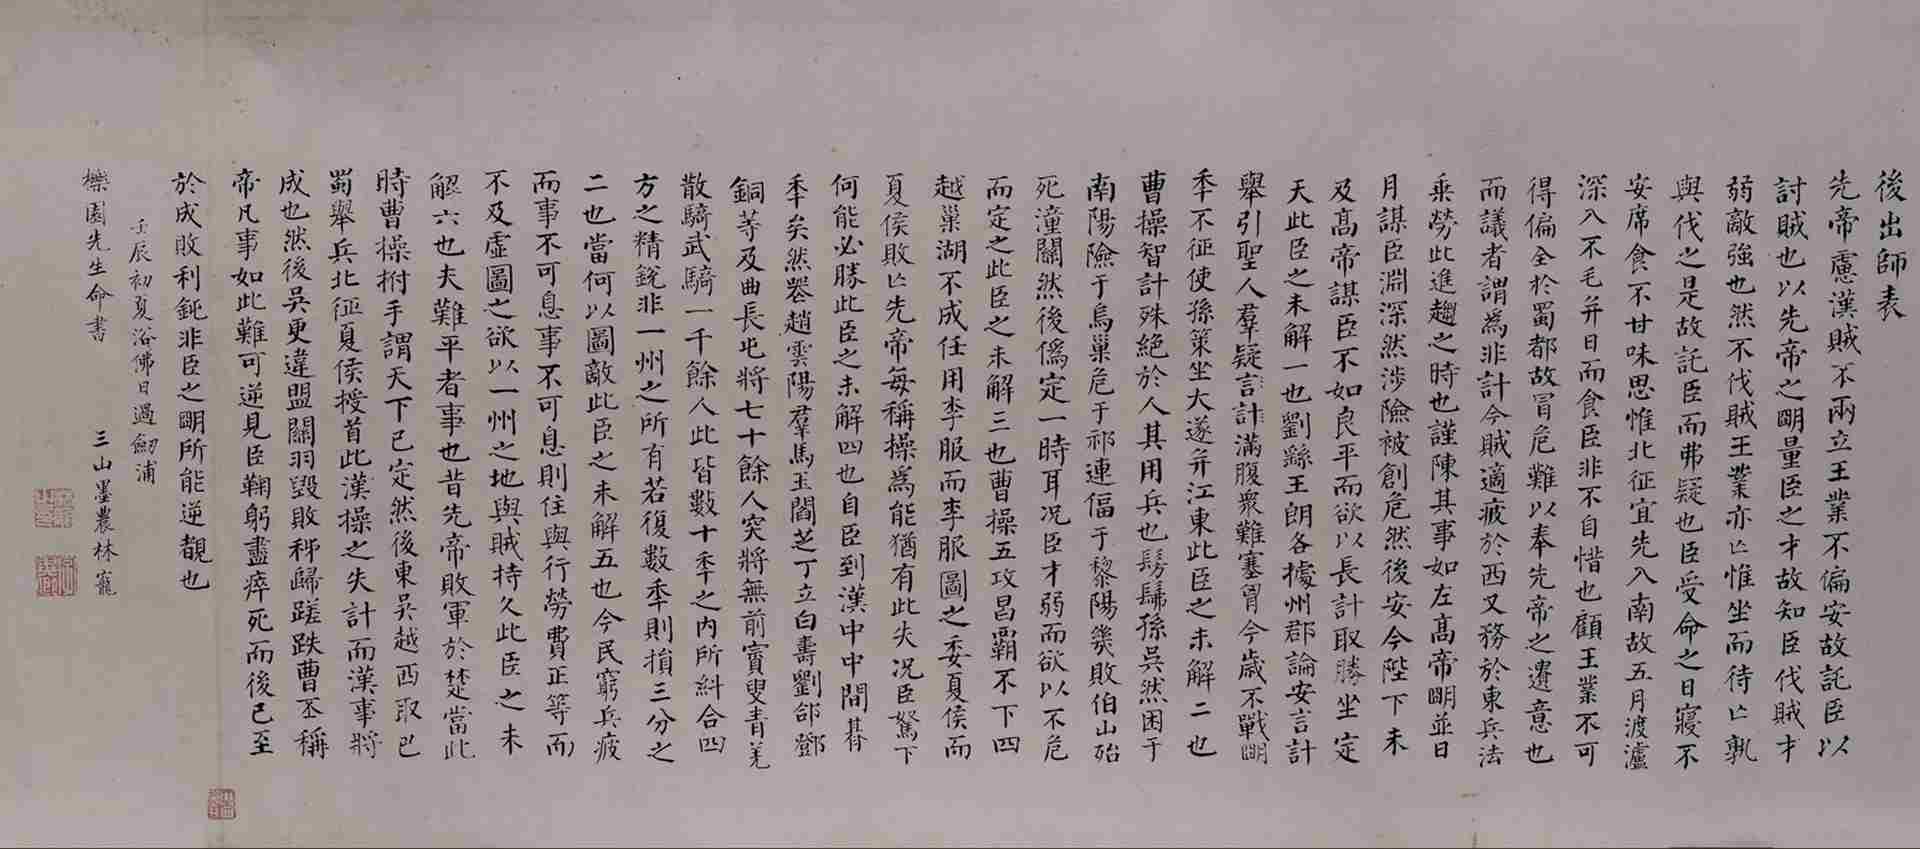 後出師表
先帝慮漢賊不兩立王業不偏安故託臣以
討賊也以先帝之朙量臣之才故知臣伐賊才
弱敵強也然不伐賊王業亦亡惟坐而待亡孰
與伐之是故託臣而弗疑也臣受命之日寢不
安席食不甘味思惟北征宜先入南故五月渡瀘
深入不毛并日而食臣非不自惜也顧王業不可
得偏全於蜀都故冒危難以奉先帝之遺意也
而議者謂為非計今賊適疲於西又務於東兵法
乘勞此進趨之時也謹陳其事如左高帝朙並日
月謀臣淵深然涉險被創危然後安今陛下未
及高帝謀臣不如良平而欲以長計取勝坐定
天此臣之未解一也劉繇王朗各據州郡論安言計
舉引聖人羣疑言計滿腹衆難塞胷今歲不戰朙
秊不征使孫策坐大遂并江東此臣之未解二也
曹操智計殊絕於人其用兵也髣髴孫吳然困于
南陽險于烏巢危于祁連偪于黎陽幾敗伯山殆
死潼關然後僞定一時耳况臣才弱而欲以不危
而定之此臣之未解三也曹操五攻昌霸不下四
越巢湖不成任用李服而李服圖之委夏侯而
夏侯敗亡先帝每稱操為能猶有此失况臣駑下
何能必勝此臣之未解四也自臣到漢中中間朞
秊矣然喪趙雲陽羣馬玉閻芝丁立白壽劉郃鄧
銅等及曲長屯將七十餘人突將無前賨叟青羌
散騎武騎一千餘人此皆數十秊之內所糾合四
方之精銳非一州之所有若復數秊則損三分之
二也當何以圖敵此臣之未解五也今民窮兵疲
而事不可息事不可息則住與行勞費正等而
不及虛圖之欲以一州之地與賊持久此臣之未
解六也夫難平者事也昔先帝敗軍於楚當此
時曹操拊手謂天下已定然後東吳越西取巴
蜀舉兵北征夏侯授首此漢操之失計而漢事將
成也然後吳更違盟關羽毀敗秭歸蹉跌曹丕稱
帝凡事如此難可逆見臣鞠躬盡瘁死而後已至
於成敗利鈍非臣之朙所能逆覩也
壬辰初夏浴佛日過劒浦
櫟園先生命書 三山墨農林寵